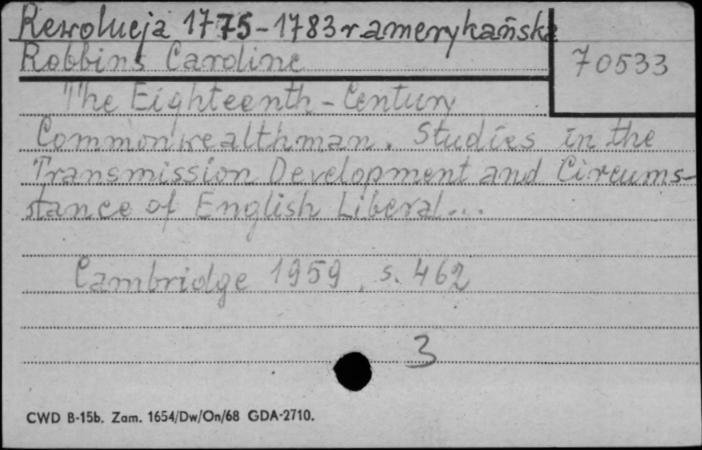 Rewolucja 1775-1783 r amerykańska
Robbins Caroline
70533
The Eighteenth-Century
Commonwealthman. Studies in the
Transmission Development and Circums-
stance of English Liberal...
Cambridge 1959, s. 462
3
CWD B-15b. Zam. 1654/Dw/On/68 GDA-2710.